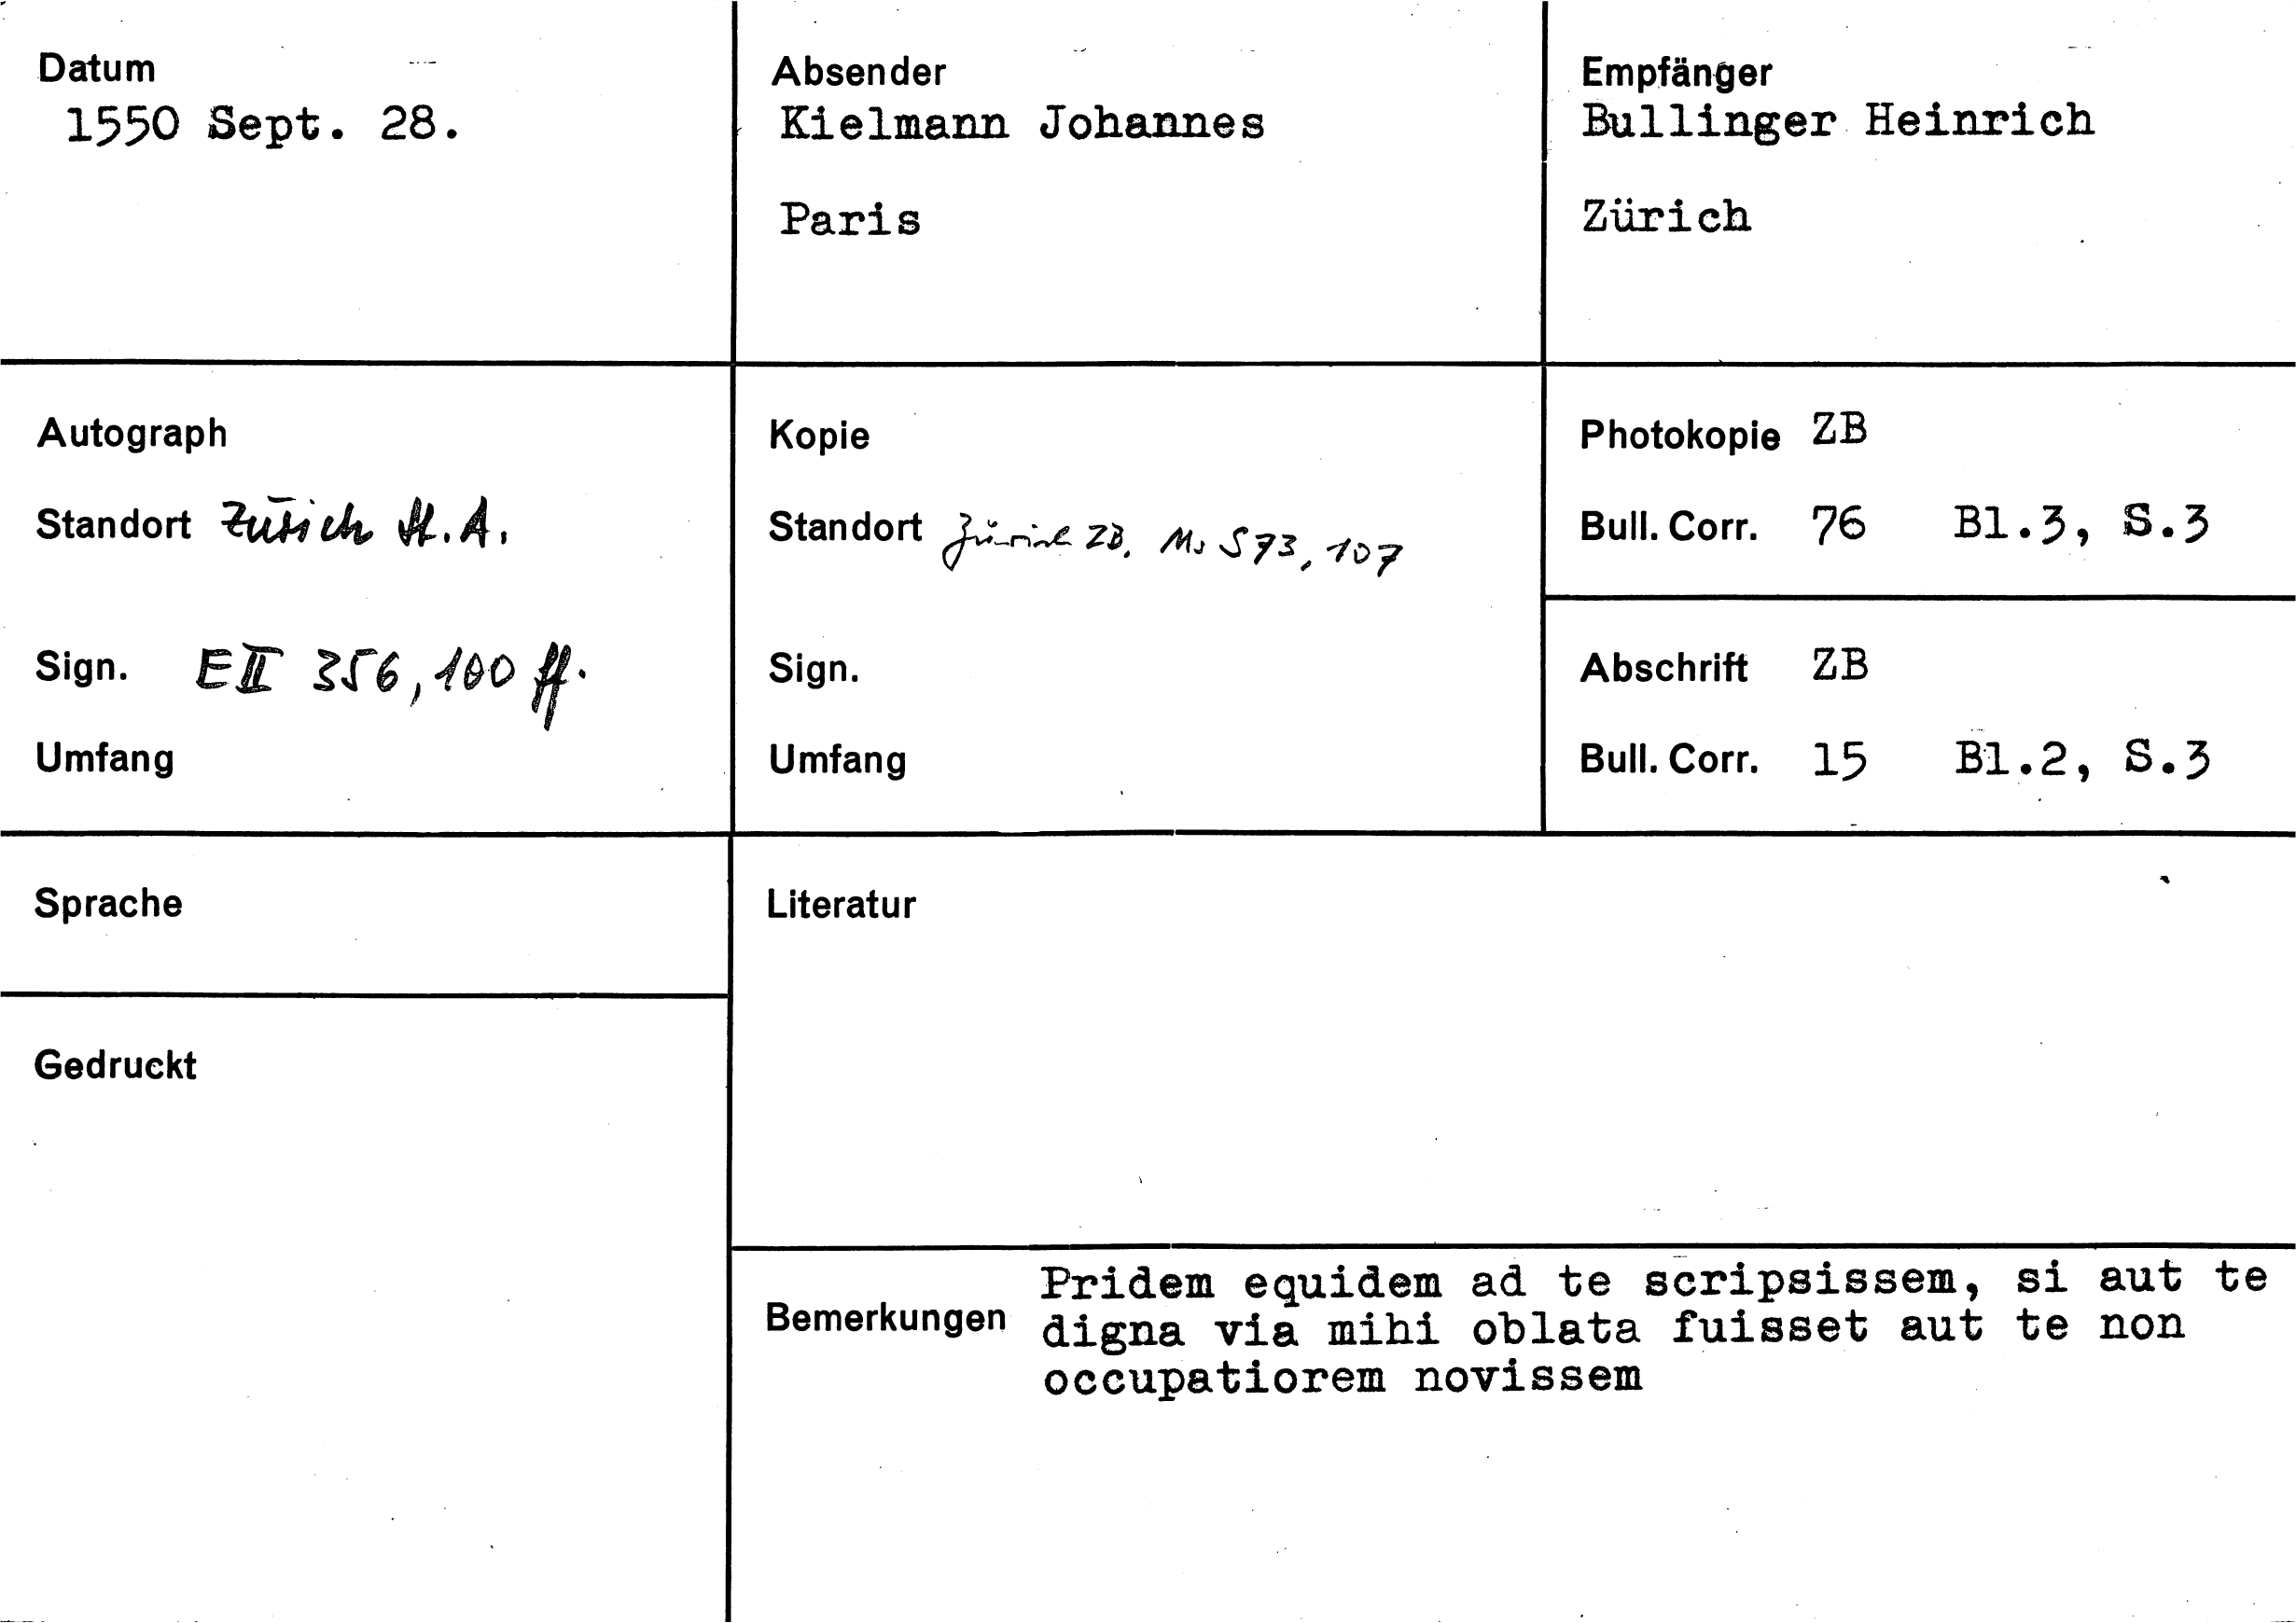 Datum
1550 Sept. 28.
Absender
Kielmann Johannes
Paris
Empfänger
Bullinger Heinrich
Zürich
Autograph
Standort Zürich St.A.
Sign. E II 356, 100 ff.
Umfang
Kopie
Standort Zürich ZB, Ms S 73, 107
Sign.
Umfang
Photokopie ZB
Bull. Corr. 76 Bl.3, S.3
Abschrift ZB
Bull. Corr. 15 Bl.2, S.3
Sprache
Gedruckt
Literatur
Bemerkungen
Pridem equidem ad te scripsissem, si aut te
digna via mihi oblata fuisset aut te non
occupatiorem novissem